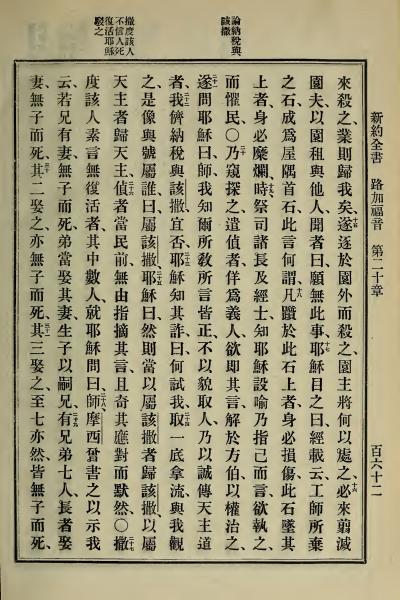 新約全書 路加福音 第二十章 百六十二
論納稅與
該撒
撒度該人
不信人死
復活耶穌
駁之
來殺之業則歸我矣、十五遂逐於園外而殺之、園主將何以處之、十六必來翦滅
園夫以園租與他人、聞者曰、願無此事、十七耶穌目之曰、經載云、工師所棄
之石、成爲屋隅首石、此言何謂、十八凡躓於此石上者、身必損傷、此石墜其
上者、身必糜爛、十九時祭司諸長及經士、知耶穌設喻、乃指己而言、欲執之、
而懼民○二十乃窺探之、遣偵者佯爲義人、欲即其言、解於方伯、以權治之、
二十一遂問耶穌曰、師、我知爾所敎所言皆正、不以貌取人、乃以誠傳天主道
者、二十二我儕納稅與該撒、宜否、二十三耶穌知其詐、曰、何試我、二十四取一底拿流與我觀
之、是像與號屬誰、曰、屬該撒、二十五耶穌曰、然則當以屬該撒者歸該撒、以屬
天主者歸天主、二十六偵者當民前、無由指摘其言、且奇其應對而默然○二十七撒
度該人素言無復活者、其中數人、就耶穌問曰、二十八師、摩西曾書之以示我
云、若兄有妻無子而死、弟當娶其妻、生子以嗣兄、二十九有兄弟七人、長者娶
妻、無子而死、三十其二娶之、亦無子而死、三十一其三娶之、至七亦然、皆無子而死、